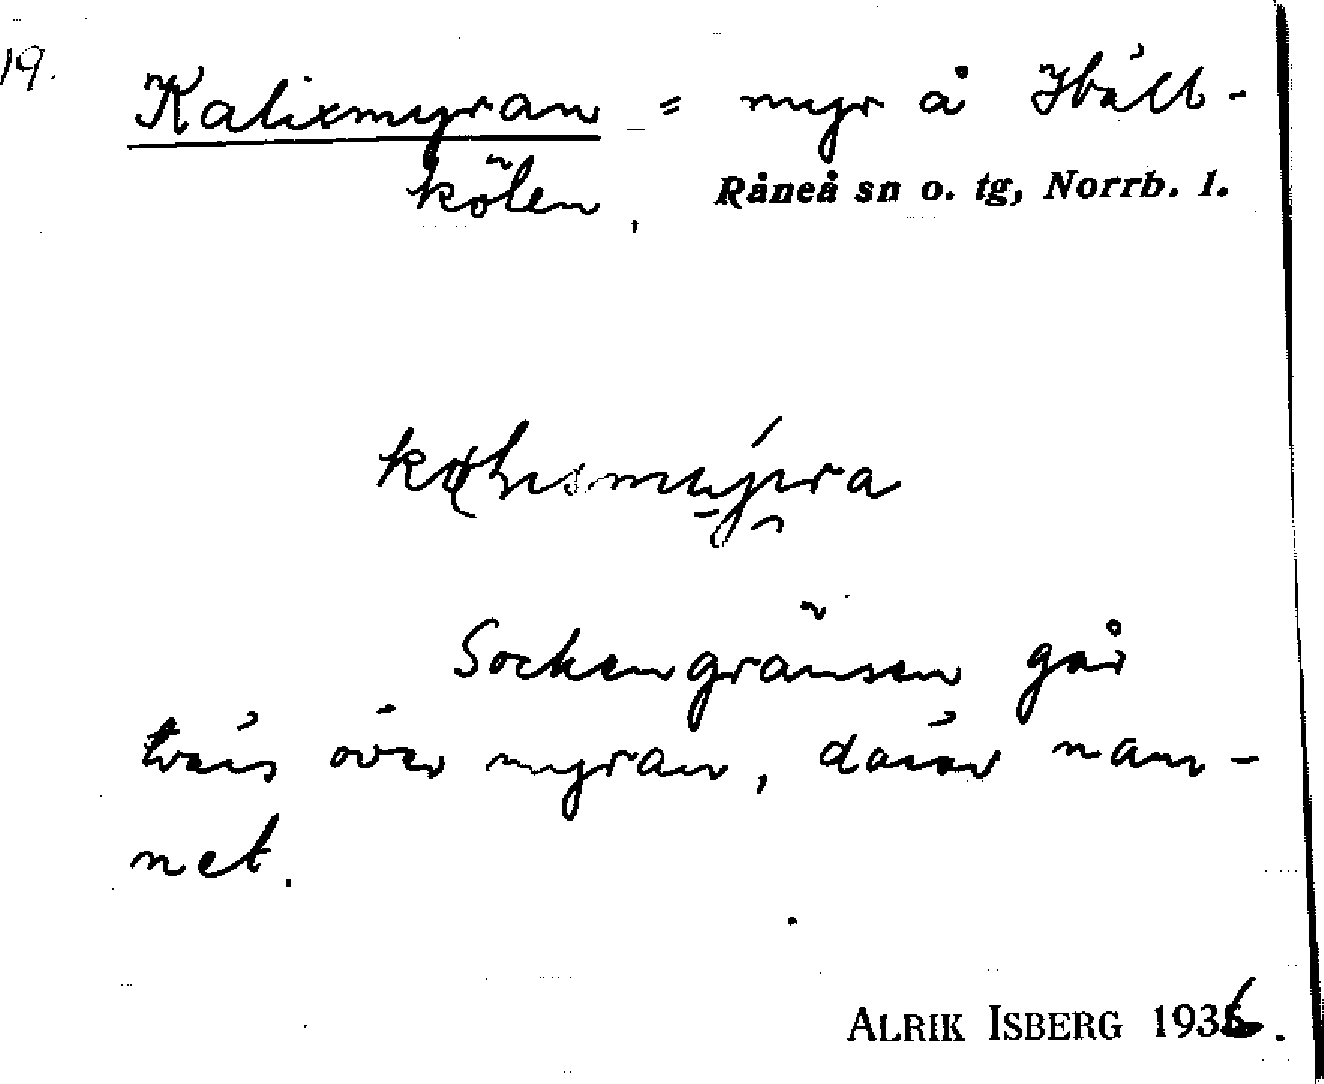 19.
Kalixmyran = myr å Hbäll-
kölen, Råneå sn o. tg, Norrb. l.
Sockengränsen går
tvärs över myran, därav nam-
net.
ALRIK ISBERG 1936.